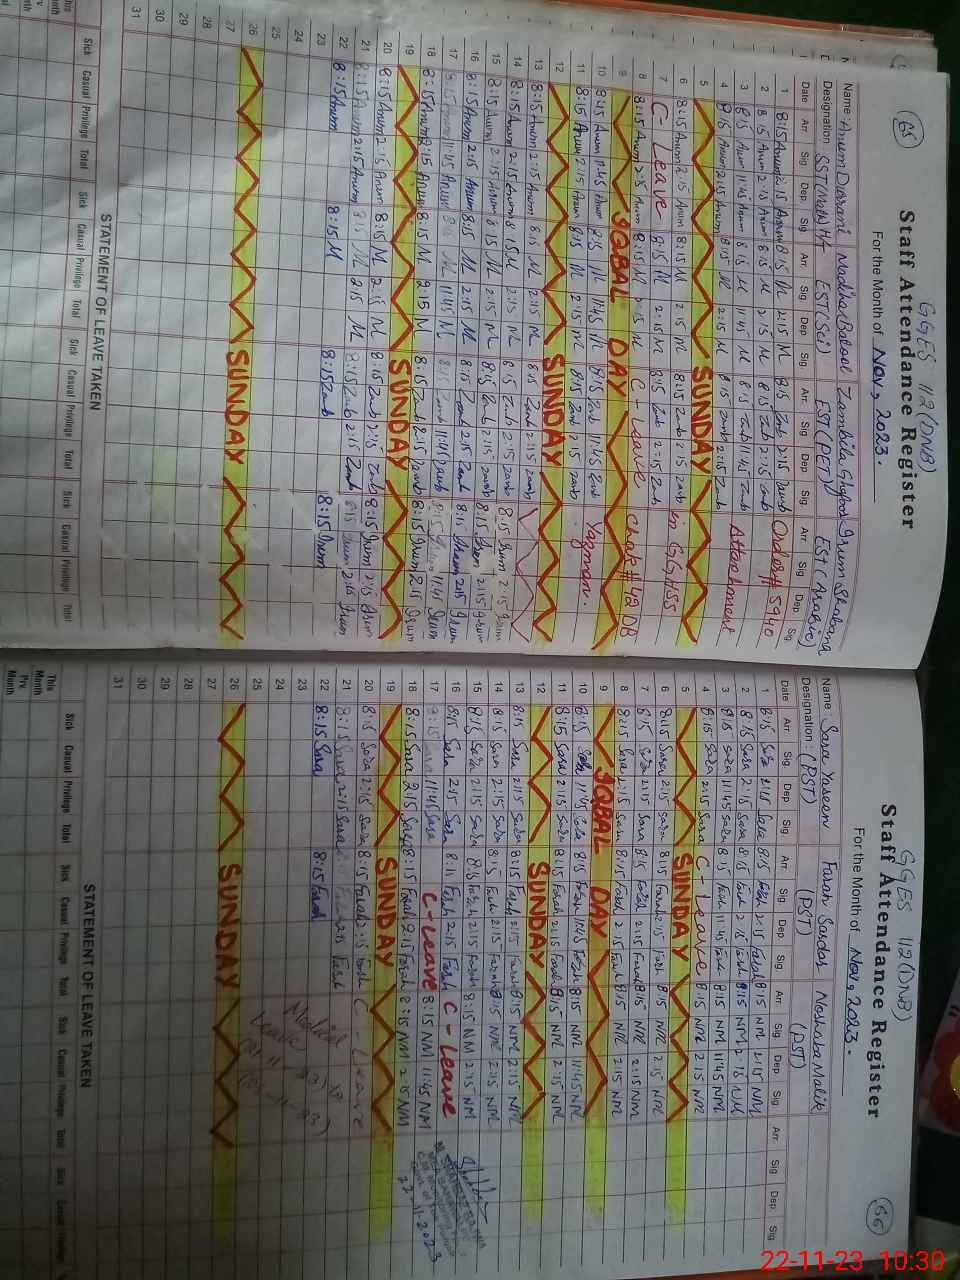 65
GGES 112(DNB)
Staff Attendance Register
For the Month of Nov, 2023.
Name: Anum Durrani Nadiha Batool Zambila Ghafoor Irum Shabana
Designation: SST(Math)H+ EST(Sci) EST(PET) EST(Arabic)
Date Arr. Sig Dep. Sig Arr. Sig Dep. Sig Arr. Sig Dep. Sig Arr. Sig Dep. Sig
1 8:15 Anum 2:15 Anum 8:15 M 2:15 M 8:15 Zanb 2:15 Zanb Order# 5940
2 8:15 Anum 2:15 Anum 8:15 M 2:15 M 8:15 Zanb 2:15 Zanb
3 8:15 Anum 11:45 Anum 8:15 M 11:45 M 8:15 Zanb 11:45 Zanb Attachment
4 8:15 Anum 2:15 Anum 8:15 M 2:15 M 8:15 Zanb 2:15 Zanb
5 SUNDAY
6 8:15 Anum 2:15 Anum 8:15 M 2:15 M 8:15 Zanb 2:15 Zanb in GGHSS
7 C- Leave 8:15 M 2:15 M 8:15 Zanb 2:15 Zanb
8 8:15 Anum 2:15 Anum 8:15 M 2:15 M C - Leave Chak #42 DB
9 IQBAL DAY
10 8:15 Anum 11:45 Anum 8:15 M 11:45 M 8:15 Zanb 11:45 Zanb Yazman.
11 8:15 Anum 2:15 Anum 8:15 M 2:15 M 8:15 Zanb 2:15 Zanb
12 SUNDAY
13 8:15 Anum 2:15 Anum 8:15 M 2:15 M 8:15 Zanb 2:15 Zanb
14 8:15 Anum 2:15 Anum 8:15 M 2:15 M 8:15 Zanb 2:15 Zanb 8:15 Irum 2:15 Irum
15 8:15 Anum 2:15 Anum 8:15 M 2:15 M 8:15 Zanb 2:15 Zanb 8:15 Irum 2:15 Irum
16 8:15 Anum 2:15 Anum 8:15 M 2:15 M 8:15 Zanb 2:15 Zanb 8:15 Irum 2:15 Irum
17 8:15 Anum 11:45 Anum 8:15 M 11:45 M 8:15 Zanb 11:45 Zanb 8:15 Irum 11:45 Irum
18 8:15 Anum 2:15 Anum 8:15 M 2:15 M 8:15 Zanb 2:15 Zanb 8:15 Irum 2:15 Irum
19 SUNDAY
20 8:15 Anum 2:15 Anum 8:15 M 2:15 M 8:15 Zanb 2:15 Zanb 8:15 Irum 2:15 Irum
21 8:15 Anum 2:15 Anum 8:15 M 2:15 M 8:15 Zanb 2:15 Zanb 8:15 Irum 2:15 Irum
22 8:15 Anum 8:15 M 8:15 Zanb 8:15 Irum
23
24
25
26 SUNDAY
27
28
29
30
31
STATEMENT OF LEAVE TAKEN
Sick Casual Privilege Total Sick Casual Privilege Total Sick Casual Privilege Total Sick Casual Privilege Total
This Month
66
GGES 112(DNB)
Staff Attendance Register
For the Month of Nov, 2023.
Name: Sara Yaseen Farah Sardar Noshaba Malik
Designation: (PST) (PST) (PST)
Date Arr. Sig Dep. Sig Arr. Sig Dep. Sig Arr. Sig Dep. Sig Arr. Sig Dep. Sig
1 8:15 Sara 2:15 Sara 8:15 Farah 2:15 Farah 8:15 NM 2:15 NM
2 8:15 Sara 2:15 Sara 8:15 Farah 2:15 Farah 8:15 NM 2:15 NM
3 8:15 Sara 11:45 Sara 8:15 Farah 11:45 Farah 8:15 NM 11:45 NM
4 8:15 Sara 2:15 Sara C - Leave 8:15 NM 2:15 NM
5 SUNDAY
6 8:15 Sara 2:15 Sara 8:15 Farah 2:15 Farah 8:15 NM 2:15 NM
7 8:15 Sara 2:15 Sara 8:15 Farah 2:15 Farah 8:15 NM 2:15 NM
8 8:15 Sara 2:15 Sara 8:15 Farah 2:15 Farah 8:15 NM 2:15 NM
9 IQBAL DAY
10 8:15 Sara 11:45 Sara 8:15 Farah 11:45 Farah 8:15 NM 11:45 NM
11 8:15 Sara 2:15 Sara 8:15 Farah 2:15 Farah 8:15 NM 2:15 NM
12 SUNDAY
13 8:15 Sara 2:15 Sara 8:15 Farah 2:15 Farah 8:15 NM 2:15 NM
14 8:15 Sara 2:15 Sara 8:15 Farah 2:15 Farah 8:15 NM 2:15 NM
15 8:15 Sara 2:15 Sara 8:15 Farah 2:15 Farah 8:15 NM 2:15 NM
16 8:15 Sara 2:15 Sara 8:11 Farah 2:15 Farah C - Leave
17 8:15 Sara 11:45 Sara C-Leave 8:15 NM 11:45 NM
18 8:15 Sara 2:15 Sara 8:15 Farah 2:15 Farah 8:15 NM 2:15 NM
22-11-2023
19 SUNDAY
20 8:15 Sara 2:15 Sara 8:15 Farah 2:15 Farah C - Leave
21 8:15 Sara 2:15 Sara 8:15 Farah 2:15 Farah
22 8:15 Sara 8:15 Farah
Medical
Leave
23
24
25
26 SUNDAY
27
28
29
30
31
STATEMENT OF LEAVE TAKEN
Sick Casual Privilege Total Sick Casual Privilege Total Sick Casual Privilege Total Sick Casual Privilege
This Month
Prv. Month
22-11-23 10:30